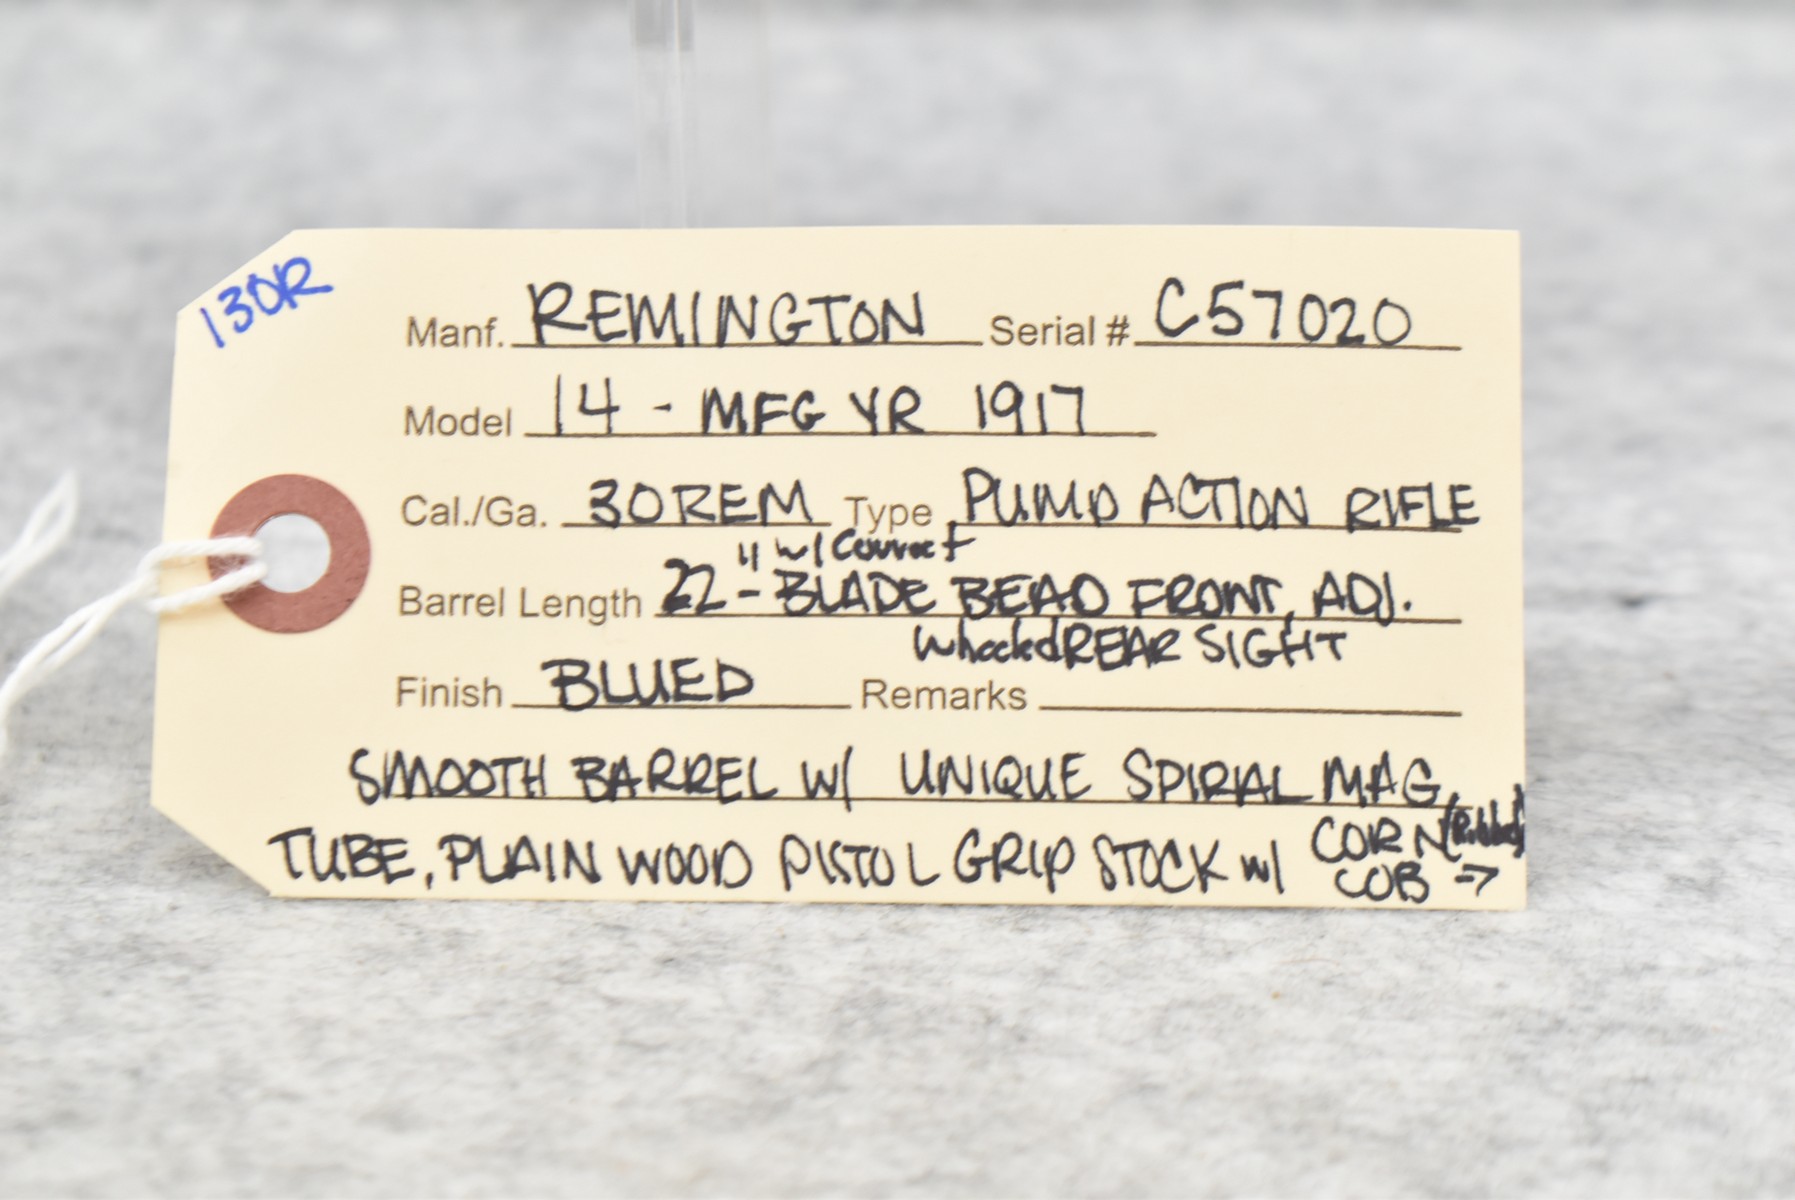 130R
Manf. REMINGTON Serial # C57020
Model 14 - MFG YR 1917
Cal./Ga. 30 REM Type PUMP ACTION RIFLE
w/ Correct
Barrel Length 22" - BLADE BEAD FRONT, ADJ.
wheeled REAR SIGHT
Finish BLUED Remarks
SMOOTH BARREL W/ UNIQUE SPIRIAL MAG
TUBE, PLAIN WOOD PISTOL GRIP STOCK w/ CORN (Ribbed)
COB →